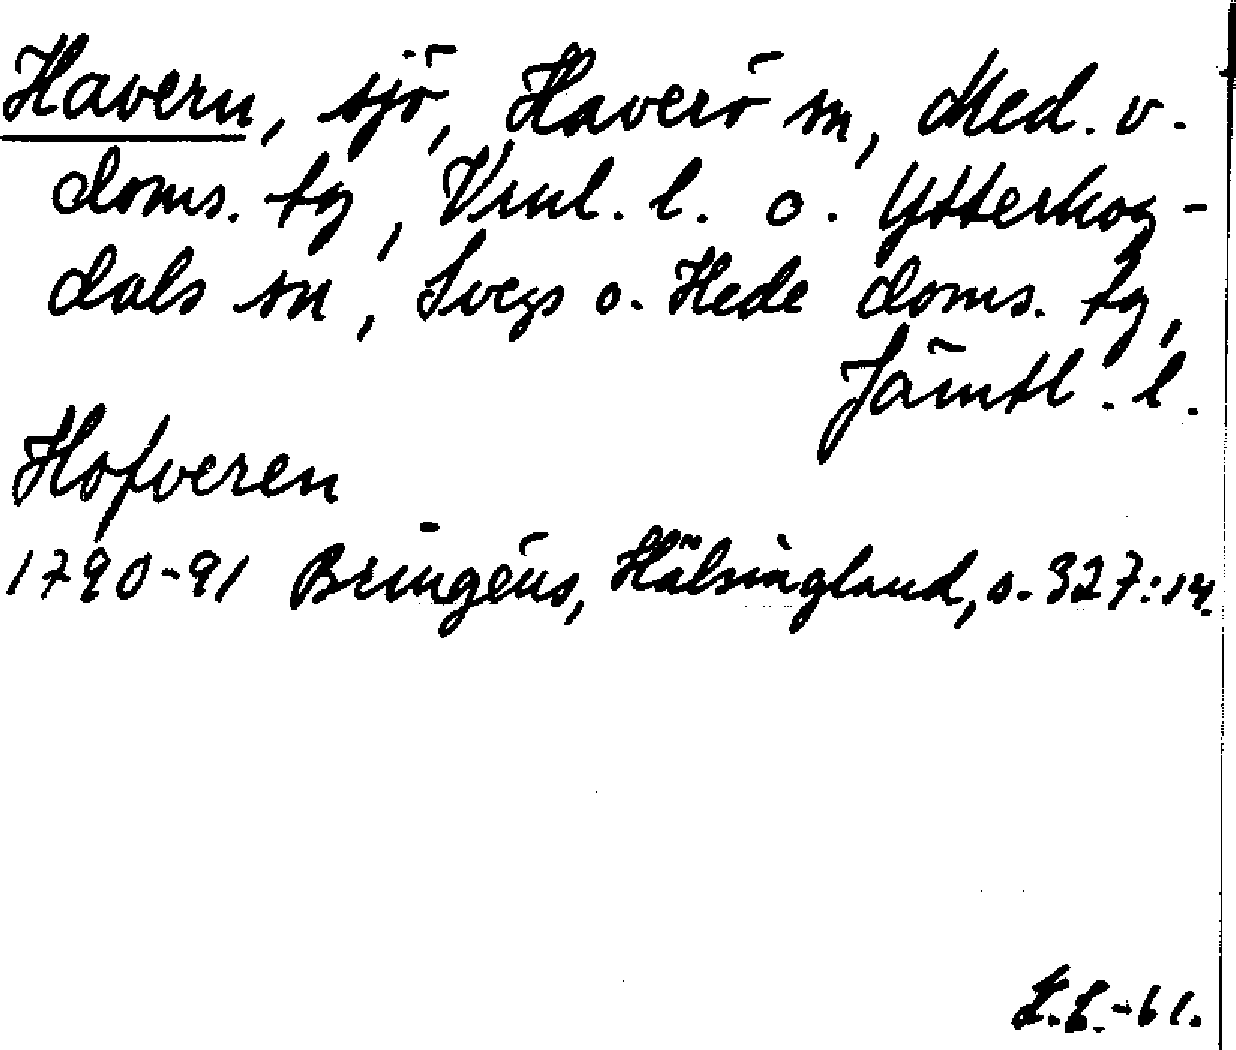 Havern, sjö, Haverö sn, Med. v.
doms. tg, Vrnl. l. o. Ytterhog-
dals sn, Svegs o. Hede doms. tg,
Jämtl. l.
Hofveren
1790-91 Bringéus, Hälsingland, s. 327:14.
-61.